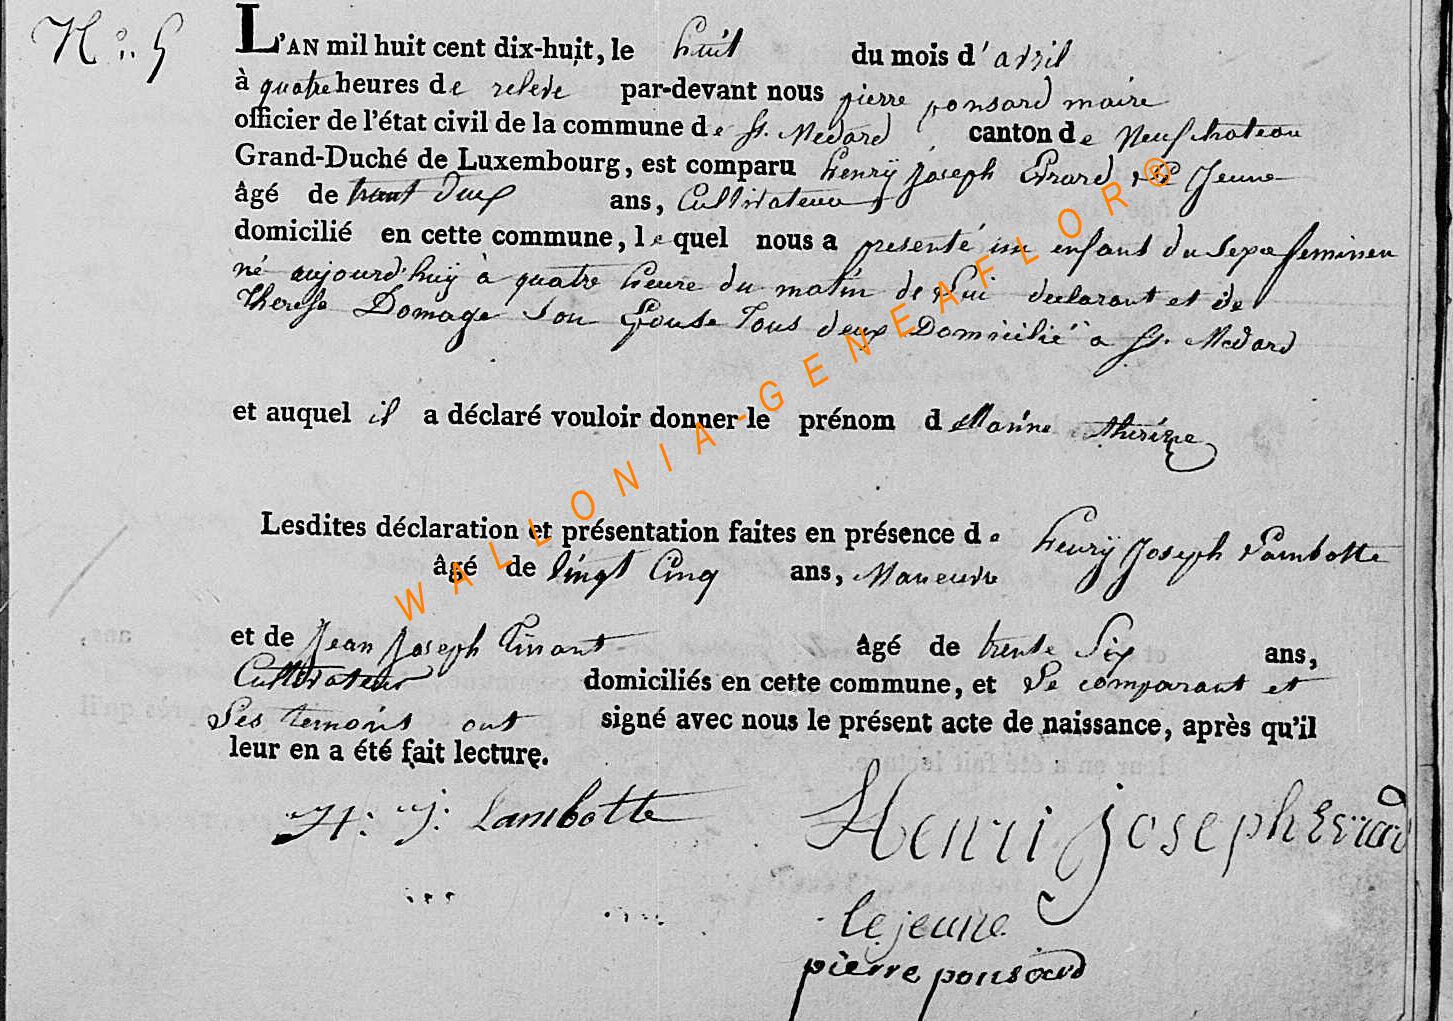 N°. 5
L'AN mil huit cent dix-huit, le huit du mois d'avril
à quatre heures de releve par-devant nous pierre ponsard maire
officier de l'état civil de la commune de St. Medard canton de Neufchateau
Grand-Duché de Luxembourg, est comparu henrÿ joseph Evrard Le Jeune
âgé de trant deux ans, Cultivateur
domicilié en cette commune, le quel nous a presenté un enfant du sexe feminien
né aujourd'huÿ à quatre heure du matin de Lui declarant et de
Therese Domage son Epouse tous deux Domicilié a St. Medard
et auquel il a déclaré vouloir donner le prénom d Marine therèze
Lesdites déclaration et présentation faites en présence de henrÿ Joseph Lambotte
âgé de vingt Cinq ans, Maneuvre
et de Jean Joseph Tinant âgé de trente Six ans,
Cultivateur domiciliés en cette commune, et Le comparant et
Les temoins ont signé avec nous le présent acte de naissance, après qu'il
leur en a été fait lecture.
H: J: Lambotte Henri joseph Evrard
le jeune
pierre ponsard
WALLONIA-GENEAFLOR®